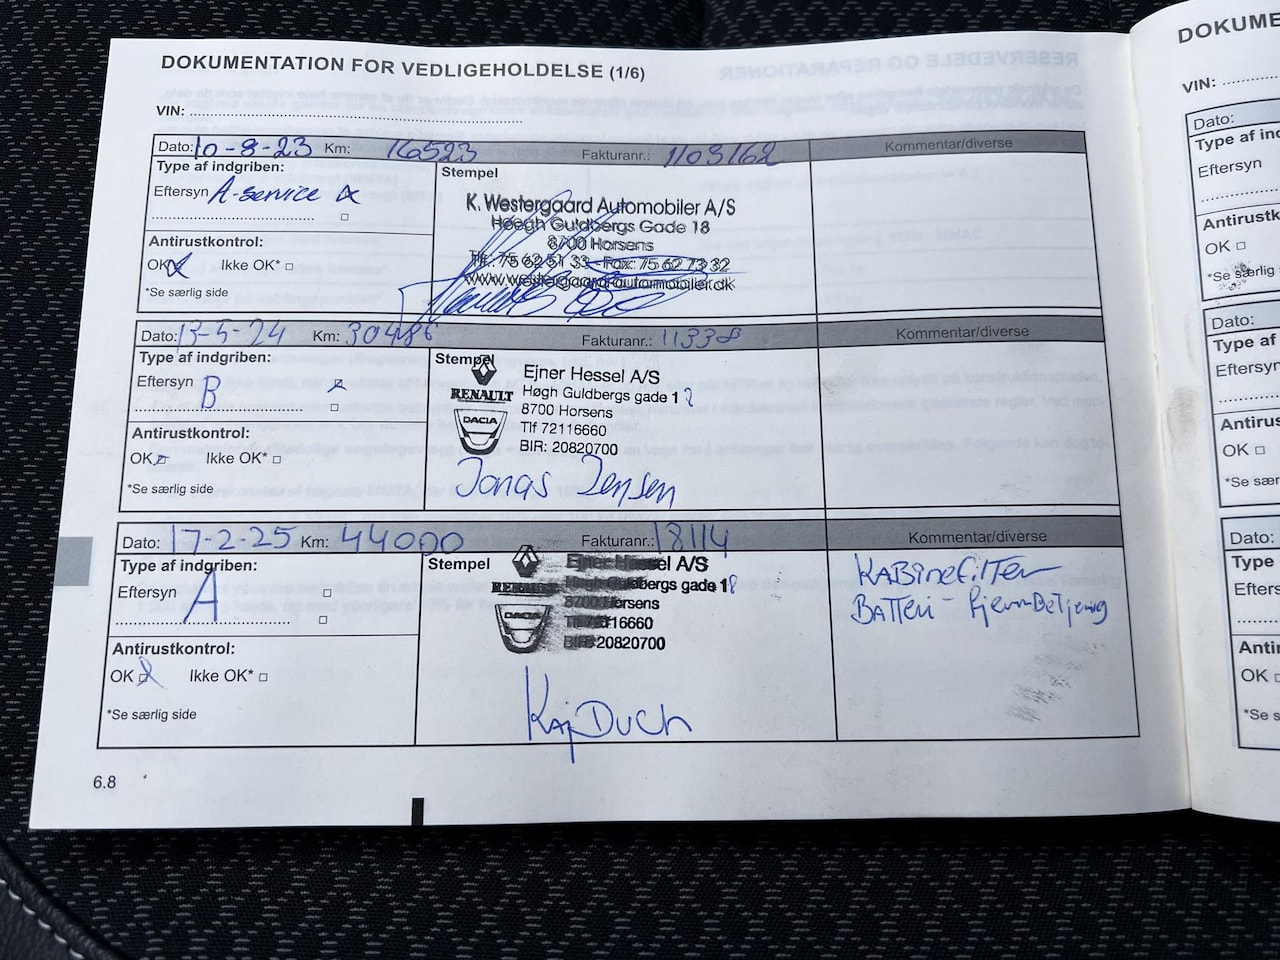 DOKUMENTATION FOR VEDLIGEHOLDELSE (1/6)
VIN:
Dato: 10-8-23 Km: 16523 Fakturanr.: 1103162 Kommentar/diverse
Type af indgriben:
Eftersyn A-service
Antirustkontrol:
OK Ikke OK*
*Se særlig side
Stempel
K. Westergaard Automobiler A/S
Høegh Guldbergs Gade 18
8700 Horsens
Tlf.: 75 62 51 33 - Fax: 75 62 73 32
www.westergaard-automobiler.dk
Dato: 13-5-24 Km: 30486 Fakturanr.: 11338 Kommentar/diverse
Type af indgriben:
Eftersyn B
Antirustkontrol:
OK Ikke OK*
*Se særlig side
Stempel
RENAULT
DACIA
Ejner Hessel A/S
Høgh Guldbergs gade 1
8700 Horsens
Tlf 72116660
BIR: 20820700
Jonas Jensen
Dato: 17-2-25 Km: 44000 Fakturanr.: 18114 Kommentar/diverse
Type af indgriben:
Eftersyn A
Antirustkontrol:
OK Ikke OK*
*Se særlig side
Stempel
RENAULT
DACIA
Ejner Hessel A/S
Høgh Guldbergs gade 18
8700 Horsens
Tlf 72116660
BIR: 20820700
Kaj Duch
KABINEFILTER
BATTERI - FJERNBETJENING
6.8
DOKUME
VIN:
Dato:
Type af ind
Eftersyn
Antirustk
OK
*Se særlig
Dato:
Type af
Eftersyn
Antirus
OK
*Se sær
Dato:
Type
Efters
Anti
OK
*Se s